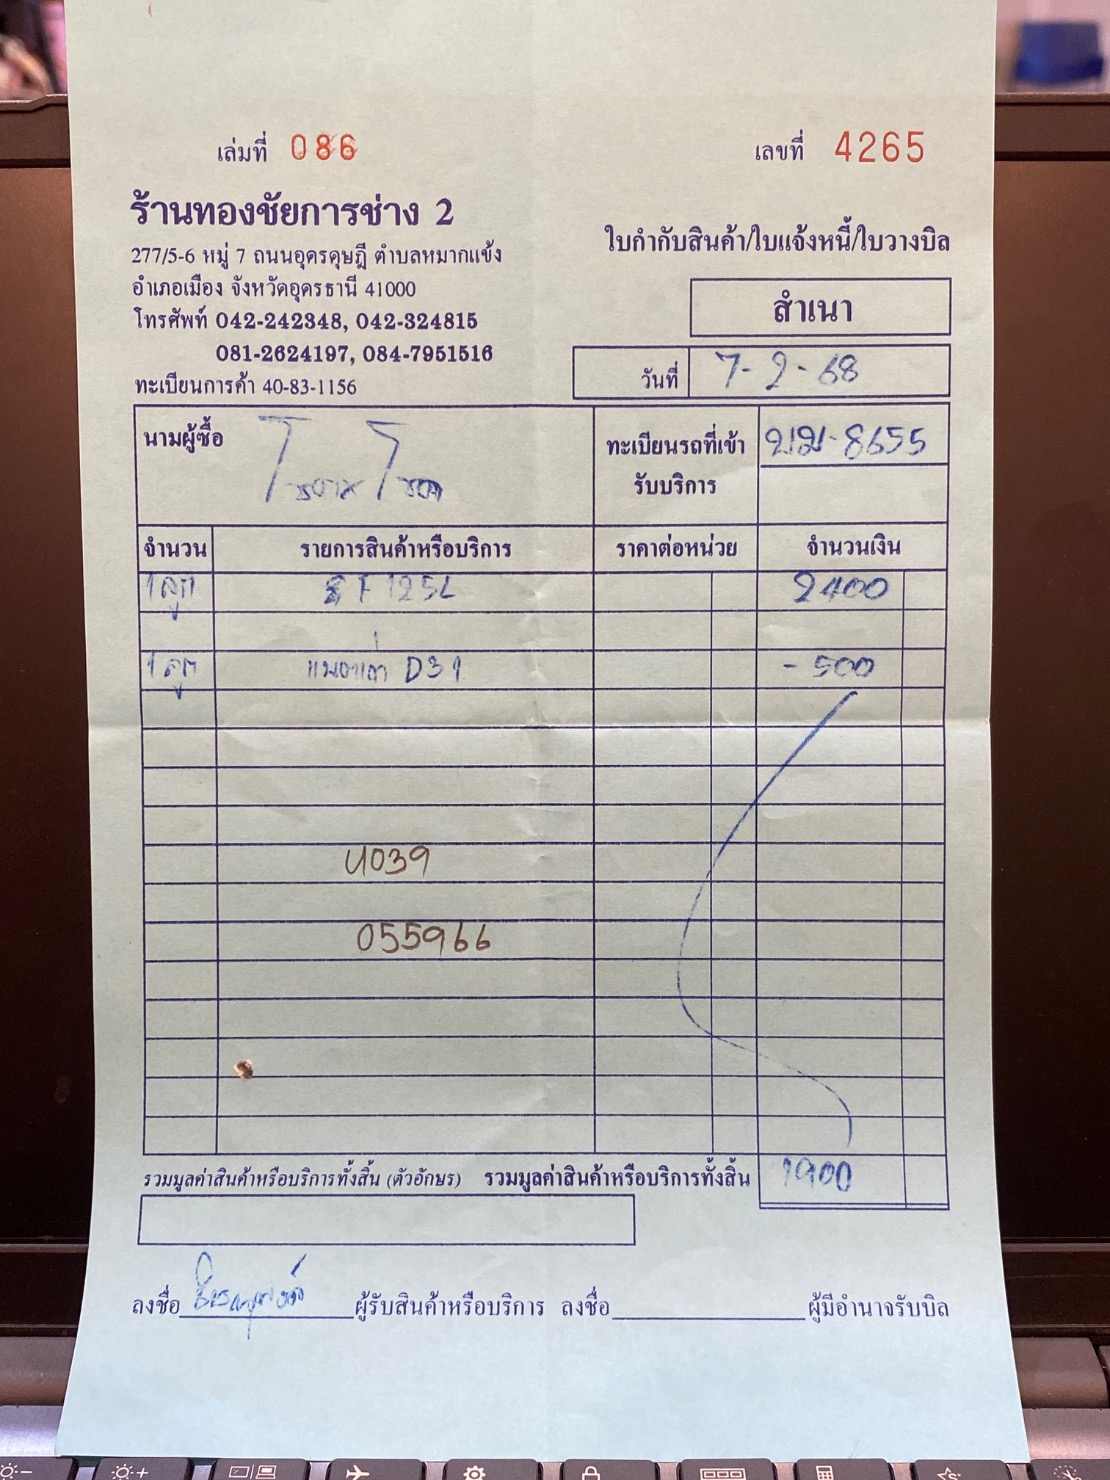 เล่มที่ 086
เลขที่ 4265
ร้านทองชัยการช่าง 2
277/5-6 หมู่ 7 ถนนอุดรดุษฎี ตำบลหมากแข้ง
อำเภอเมือง จังหวัดอุดรธานี 41000
โทรศัพท์ 042-242348, 042-324815
081-2624197, 084-7951516
ทะเบียนการค้า 40-83-1156
ใบกำกับสินค้า/ใบแจ้งหนี้/ใบวางบิล
สำเนา
วันที่ 7-2-68
นามผู้ซื้อ
ทะเบียนรถที่เข้า
รับบริการ
8655
จำนวน รายการสินค้าหรือบริการ ราคาต่อหน่วย จำนวนเงิน
1 ลูก 125L 2400
1 ลูก แบตเก่า D31 -500
055966
รวมมูลค่าสินค้าหรือบริการทั้งสิ้น (ตัวอักษร) รวมมูลค่าสินค้าหรือบริการทั้งสิ้น 1900
ลงชื่อ ผู้รับสินค้าหรือบริการ ลงชื่อ ผู้มีอำนาจรับบิล